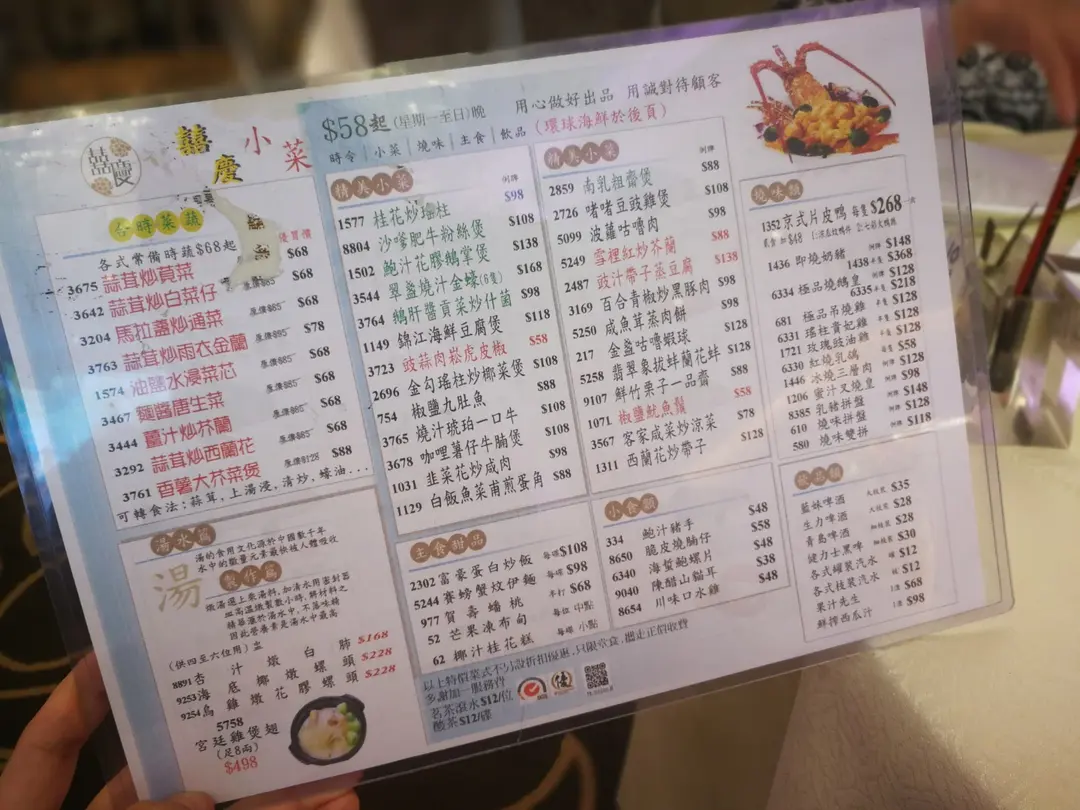 囍慶
囍慶小菜
$58起(星期一至日)晚
用心做好出品 用誠對待顧客
時令│小菜│燒味│主食│飲品(環球海鮮於後頁)
合時菜蔬
各式常備時蔬$68起
優買價
3675 蒜茸炒莧菜 $68
3642 蒜茸炒白菜仔 原價$85 $68
3204 馬拉盞炒通菜 原價$85 $68
3763 蒜茸炒雨衣金蘭 原價$95 $78
1574 油鹽水浸菜芯 原價$85 $68
3467 麵醬唐生菜 原價$85 $68
3444 薑汁炒芥蘭 原價$85 $68
3292 蒜茸炒西蘭花 原價$85 $68
3761 香薯大芥菜煲 原價$128 $88
可轉食法:蒜茸,上湯浸,清炒,蠔油...
湯水篇
湯
湯的食用文化源於中國數千年
水中的微量元素最快被人體吸收
製作篇
因此營養素是湯水中最高
(供四至六位用) 盅
8891 杏汁燉白肺 $168
9253 海底椰燉螺頭 $228
9254 烏雞燉花膠螺頭 $228
5758
宮廷雞煲翅
(足8兩)
$498
精美小菜
例牌
1577 桂花炒瑤柱 $98
8804 沙嗲肥牛粉絲煲 $108
1502 鮑汁花膠鵝掌煲 $138
3544 翠盞燒汁金蠔(6隻) $168
3764 鵝肝醬貢菜炒什菌 $98
1149 錦江海鮮豆腐煲 $118
3723 豉蒜肉崧虎皮椒 $58
2696 金勾瑤柱炒椰菜煲 $108
754 椒鹽九肚魚 $88
3765 燒汁琥珀一口牛 $108
3678 咖喱薯仔牛腩煲 $108
1031 韭菜花炒咸肉 $98
1129 白飯魚菜甫煎蛋角 $88
精美小菜
例牌
2859 南乳粗齋煲 $88
2726 啫啫豆豉雞煲 $108
5099 波蘿咕嚕肉 $98
5249 雪裡紅炒芥蘭 $88
2487 豉汁帶子蒸豆腐 $138
3169 百合青椒炒黑豚肉 $98
5250 咸魚茸蒸肉餅 $98
217 金盞咕嚕蝦球 $128
5258 翡翠象拔蚌蘭花蚌 $128
9107 鮮竹栗子一品齋 $88
1071 椒鹽魷魚鬚 $58
3567 客家咸菜炒涼菜 $78
1311 西蘭花炒帶子 $128
主食甜品
2302 富豪蛋白炒飯 每碟$108
5244 賽螃蟹炆伊麵 每碟$98
977 賀壽蟠桃 半打$68
52 芒果凍布甸 每位 中點
62 椰汁桂花糕 每碟 小點
小食類
334 鮑汁豬手 $48
8650 脆皮燒腩仔 $58
6340 海蜇鮑螺片 $48
9040 陳醋山貓耳 $38
8654 川味口水雞 $48
燒味類
1352 京式片皮鴨 每隻 $268
1436 即燒奶豬 例牌 $148
1438 $368
6334 極品燒鵝皇 例牌 $128
6335 $218
681 極品吊燒雞 半隻 $128
6331 瑤柱貴妃雞 半隻 $128
1721 玫瑰豉油雞 半隻 $128
6330 紅燒乳鴿 每隻 $58
1446 冰燒三層肉 例牌 $98
1206 蜜汁叉燒皇 例牌 $128
8385 乳豬拼盤 例牌 $148
610 燒味拼盤 例牌 $128
580 燒味雙拼 例牌 $118
藍妹啤酒 大枝裝 $35
生力啤酒 大枝裝 $28
青島啤酒 細枝裝 $28
健力士黑啤 細枝裝 $30
各式罐裝汽水 罐 $12
各式枝裝汽水
果汁先生 1渣 $68
鮮榨西瓜汁 1渣 $98
以上特價菜式不另設折扣優惠,只限堂食,攜走正價收費
多謝加一服務費
茗茶滾水$12/位
酸茶$12/碟